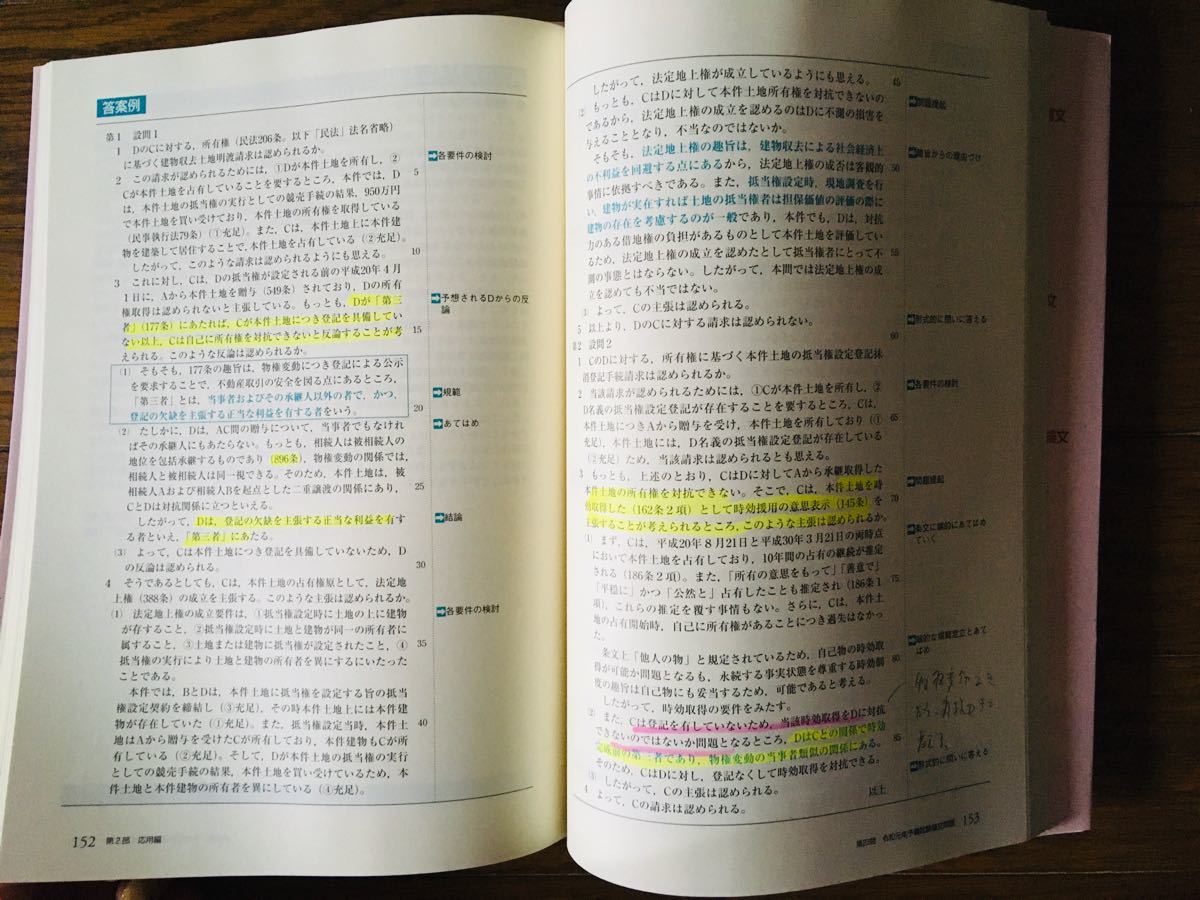 答案例
第1 設問1
1 DのCに対する、所有権(民法206条。以下「民法」法名省略)
に基づく建物収去土地明渡請求は認められるか。
2 この請求が認められるためには、①Dが本件土地を所有し、②
Cが本件土地を占有していることを要するところ、本件では、D
は、本件土地の抵当権の実行としての競売手続の結果、950万円
で本件土地を買い受けており、本件土地の所有権を取得している
(民事執行法79条)(①充足)。また、Cは、本件土地上に本件建
物を建築して居住することで、本件土地を占有している(②充足)。
したがって、このような請求は認められるようにも思える。
3 これに対し、Cは、Dの抵当権が設定される前の平成20年4月
1日に、Aから本件土地を贈与(549条)されており、Dの所有
権取得は認められないと主張している。もっとも、Dが「第三
者」(177条)にあたれば、Cが本件土地につき登記を具備してい
ない以上、Cは自己に所有権を対抗できないと反論することが考
えられる。このような反論は認められるか。
(1) そもそも、177条の趣旨は、物権変動につき登記による公示
を要求することで、不動産取引の安全を図る点にあるところ、
「第三者」とは、当事者およびその承継人以外の者で、かつ、
登記の欠缺を主張する正当な利益を有する者をいう。
(2) たしかに、Dは、AC間の贈与について、当事者でもなけれ
ばその承継人にもあたらない。もっとも、相続人は被相続人の
地位を包括承継するものであり(896条)、物権変動の関係では、
相続人と被相続人は同一視できる。そのため、本件土地は、被
相続人Aおよび相続人Bを起点とした二重譲渡の関係にあり、
CとDは対抗関係に立つといえる。
したがって、Dは、登記の欠缺を主張する正当な利益を有す
る者といえ、「第三者」にあたる。
(3) よって、Cは本件土地につき登記を具備していないため、D
の反論は認められる。
4 そうであるとしても、Cは、本件土地の占有権原として、法定地
上権(388条)の成立を主張する。このような主張は認められるか。
(1) 法定地上権の成立要件は、①抵当権設定時に土地の上に建物
が存すること、②抵当権設定時に土地と建物が同一の所有者に
属すること、③土地または建物に抵当権が設定されたこと、④
抵当権の実行により土地と建物の所有者を異にするにいたった
ことである。
本件では、BとDは、本件土地に抵当権を設定する旨の抵当
権設定契約を締結し(③充足)、その時本件土地上には本件建
物が存在していた(①充足)。また、抵当権設定当時、本件土
地はAから贈与を受けたCが所有しており、本件建物もCが所有
している(②充足)。そして、Dが本件土地の抵当権の実行
としての競売手続の結果、本件土地を買い受けているため、本
件土地と本件建物の所有者を異にしている(④充足)。
5
10
15
20
25
30
35
40
➡各要件の検討
➡予想されるDからの反
論
➡規範
➡あてはめ
➡結論
➡各要件の検討
152 第2部 応用編
したがって、法定地上権が成立しているようにも思える。
(2) もっとも、CはDに対して本件土地所有権を対抗できないの
であるから、法定地上権の成立を認めるのはDに不測の損害を
与えることとなり、不当なのではないか。
そもそも、法定地上権の趣旨は、建物収去による社会経済上
の不利益を回避する点にあるから、法定地上権の成否は客観的
事情に依拠すべきである。また、抵当権設定時、現地調査を行
い、建物が実在すれば土地の抵当権者は担保価値の評価の際に
建物の存在を考慮するのが一般であり、本件でも、Dは、対抗
力のある借地権の負担があるものとして本件土地を評価してい
るため、法定地上権の成立を認めたとして抵当権者にとって不
測の事態とはならない。したがって、本問では法定地上権の成
立を認めても不当ではない。
(3) よって、Cの主張は認められる。
5 以上より、DのCに対する請求は認められない。
第2 設問2
1 CのDに対する、所有権に基づく本件土地の抵当権設定登記抹
消登記手続請求は認められるか。
2 当該請求が認められるためには、①Cが本件土地を所有し、②
D名義の抵当権設定登記が存在することを要するところ、Cは、
本件土地につきAから贈与を受け、本件土地を所有しており(①
充足)、本件土地には、D名義の抵当権設定登記が存在している
(②充足)ため、当該請求は認められるとも思える。
3 もっとも、上述のとおり、CはDに対してAから承継取得した
本件土地の所有権を対抗できない。そこで、Cは、本件土地を時
効取得した(162条2項)として時効援用の意思表示(145条)を
主張することが考えられるところ、このような主張は認められるか。
(1) まず、Cは、平成20年8月21日と平成30年3月21日の両時点
において本件土地を占有しており、10年間の占有の継続が推定
される(186条2項)。また、「所有の意思をもって」「善意で」
「平穏に」かつ「公然と」占有したことも推定され(186条1
項)、これらの推定を覆す事情もない。さらに、Cは、本件土
地の占有開始時、自己に所有権があることにつき過失はなかっ
た。
条文上「他人の物」と規定されているため、自己物の時効取
得が可能か問題となるも、永続する事実状態を尊重する時効制
度の趣旨は自己物にも妥当するため、可能であると考える。
したがって、時効取得の要件をみたす。
(2) また、Cは登記を有していないため、当該時効取得をDに対抗
できないのではないか問題となるところ、DはCとの関係で時効
完成前の第三者であり、物権変動の当事者類似の関係にある。
そのため、CはDに対し、登記なくして時効取得を対抗できる。
(3) したがって、Cの主張は認められる。
4 よって、Cの請求は認められる。 以上
45
50
55
60
65
70
75
80
85
➡問題提起
➡趣旨からの理由づけ
➡形式的に問いに答える
➡各要件の検討
➡問題提起
➡条文に端的にあてはめ
ていく
➡端的な規範定立とあて
はめ
➡形式的に問いに答える
153
論文